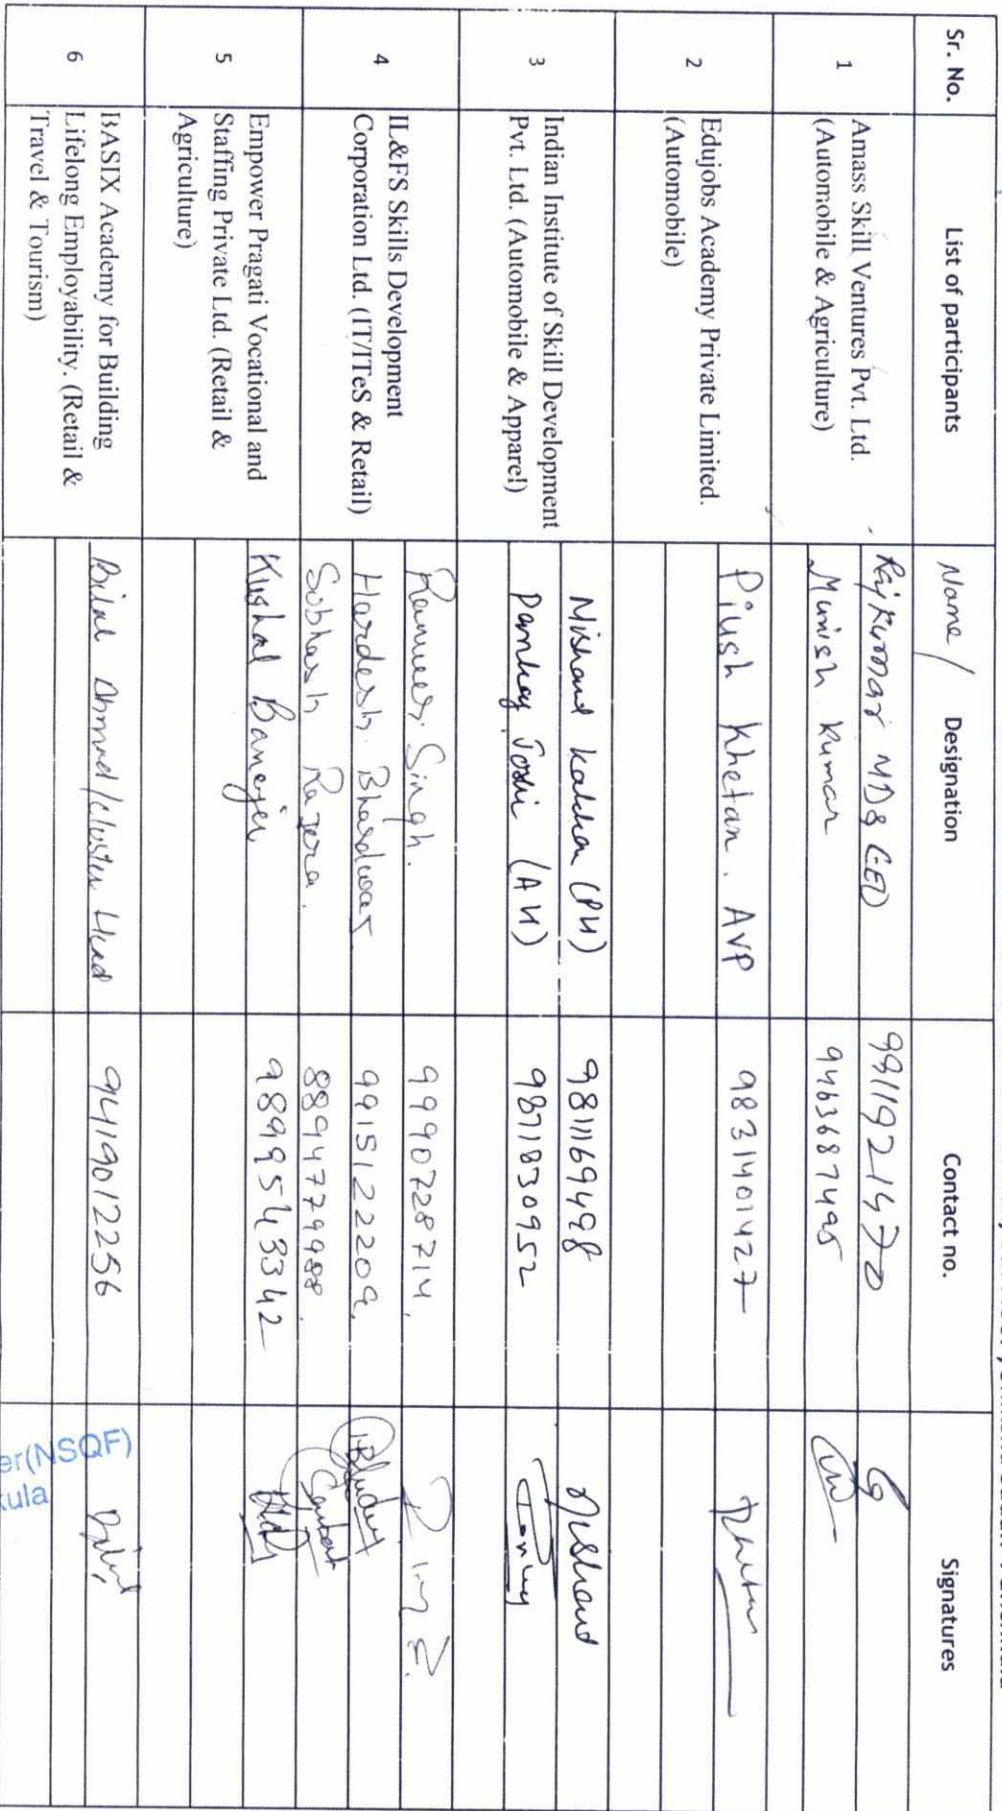 Sr. No. List of participants Name / Designation Contact no. Signatures
1 Amass Skill Ventures Pvt. Ltd. (Automobile & Agriculture)
Rajkumar MD & CEO 9911921470
Munish Kumar 9463687495
2 Edujobs Academy Private Limited. (Automobile)
Piush Khetan. AVP 9831401427
3 Indian Institute of Skill Development Pvt. Ltd. (Automobile & Apparel)
Nishant Kakkar (PH) 9811169498 Nishant
Pankaj Joshi (AH) 9871830952
4 IL&FS Skills Development Corporation Ltd. (IT/ITeS & Retail)
Ranveer Singh. 9990728714.
Hardesh Bhardwaj 9915122209.
Subhash Rajera. 8894779988.
5 Empower Pragati Vocational and Staffing Private Ltd. (Retail & Agriculture)
Kushal Banerjee 9899543342
6 BASIX Academy for Building Lifelong Employability. (Retail & Travel & Tourism)
Bilal Ahmad/cluster Head 9419012256
er(NSQF)
kula